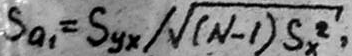 Sa₁ = Syx/√(N-1) Sx²',